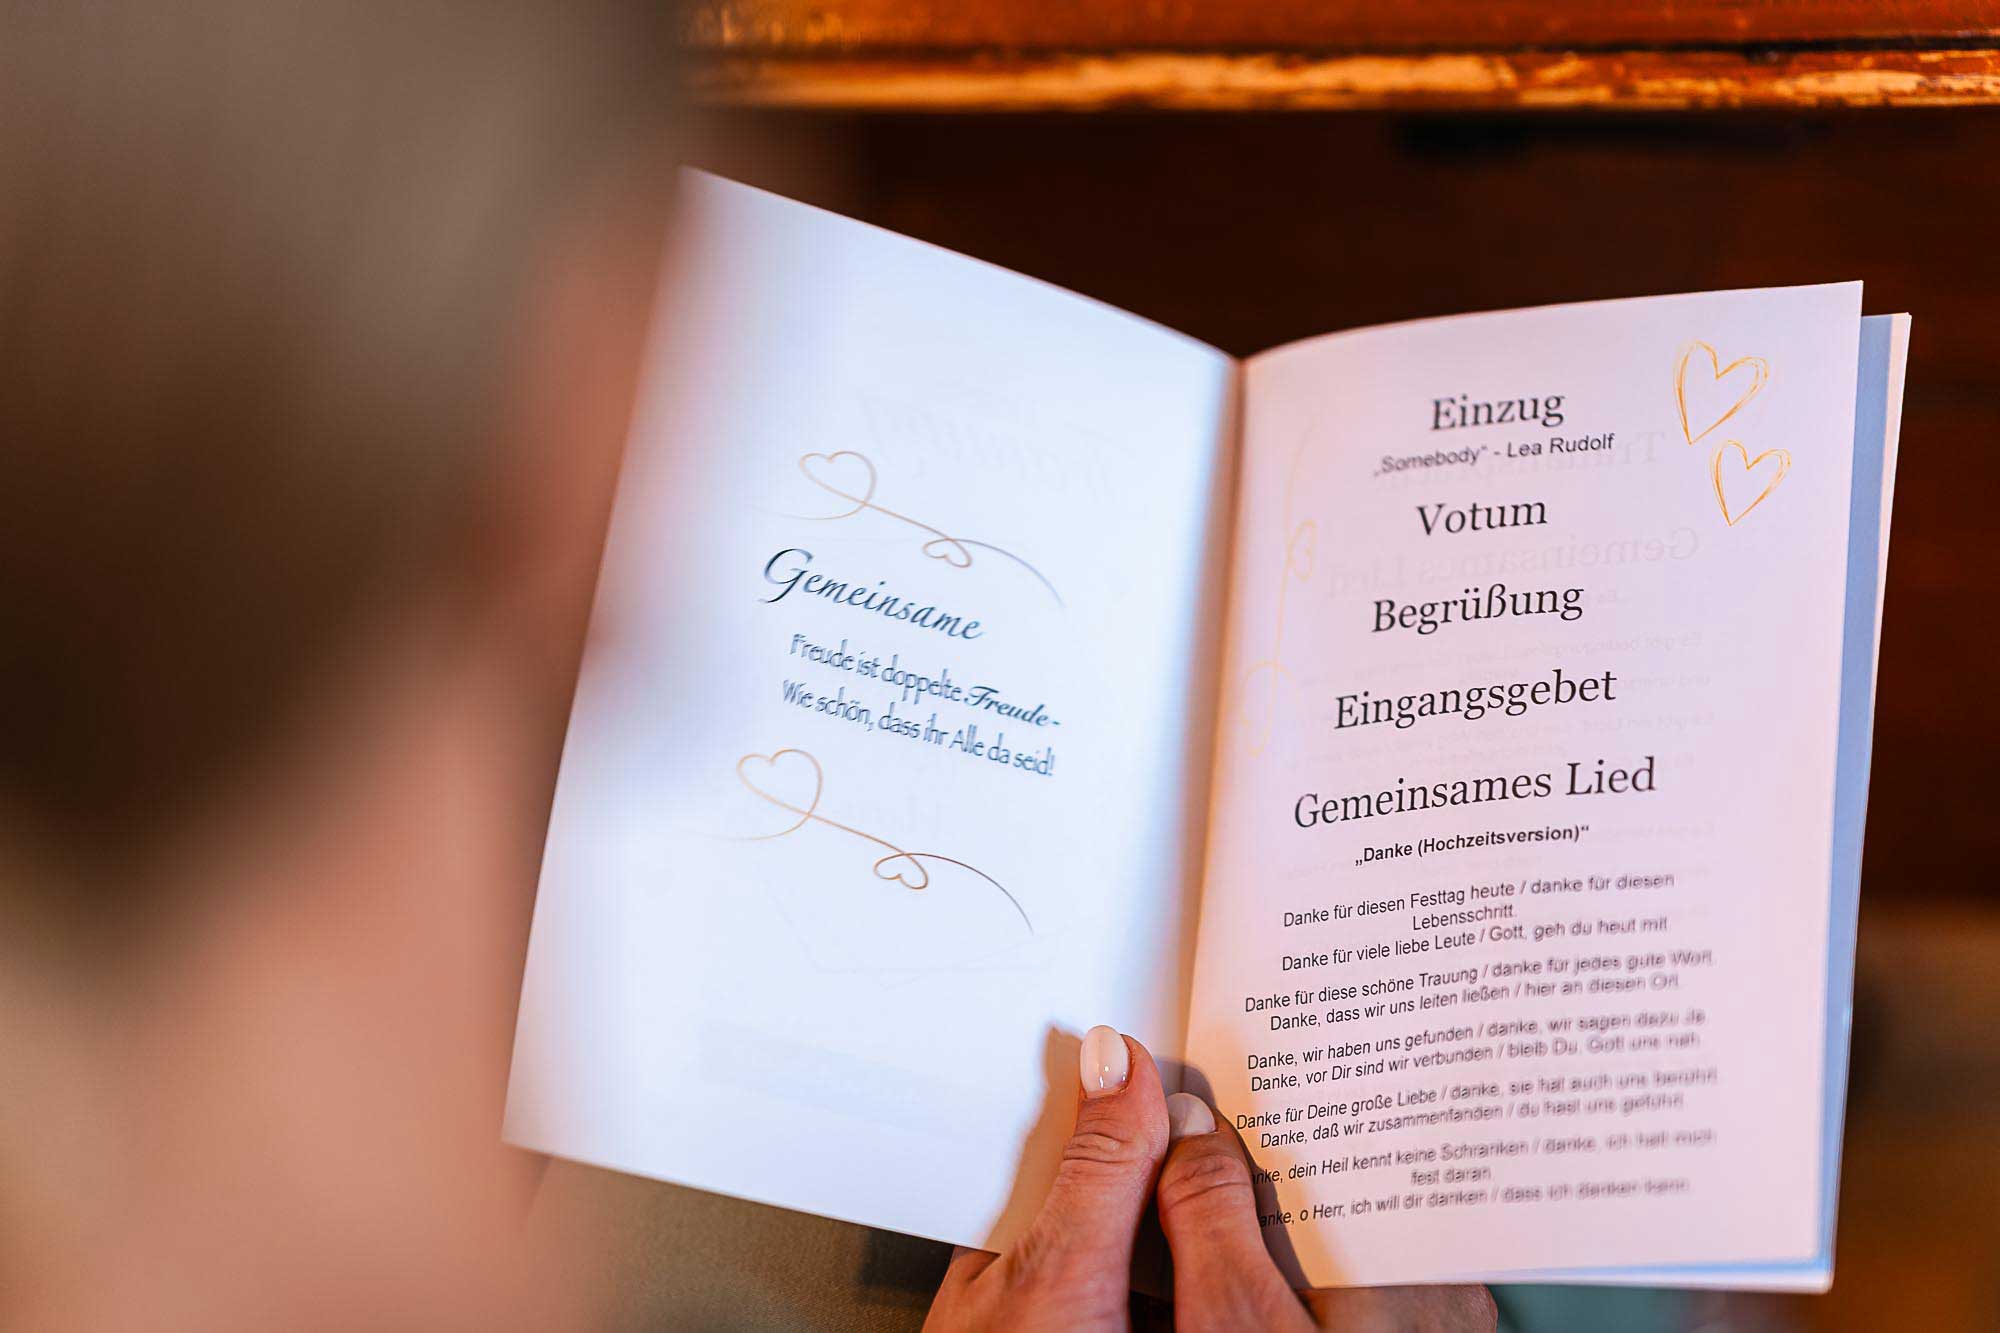 Gemeinsame
Freude ist doppelte Freude-
Wie schön, dass ihr Alle da seid!
Einzug
„Somebody“ - Lea Rudolf
Votum
Begrüßung
Eingangsgebet
Gemeinsames Lied
„Danke (Hochzeitsversion)“
Danke für diesen Festtag heute / danke für diesen
Lebensschritt.
Danke für viele liebe Leute / Gott, geh du heut mit
Danke für diese schöne Trauung / danke für jedes gute Wort.
Danke, dass wir uns leiten ließen / hier an diesen Ort.
Danke, wir haben uns gefunden / danke, wir sagen dazu Ja
Danke, vor Dir sind wir verbunden / bleib Du, Gott uns nah.
Danke für Deine große Liebe / danke, sie hat auch uns berührt
Danke, daß wir zusammenfanden / du hast uns geführt
nke, dein Heil kennt keine Schranken / danke, ich halt mich
fest daran.
anke, o Herr, ich will dir danken / dass ich danken kann.